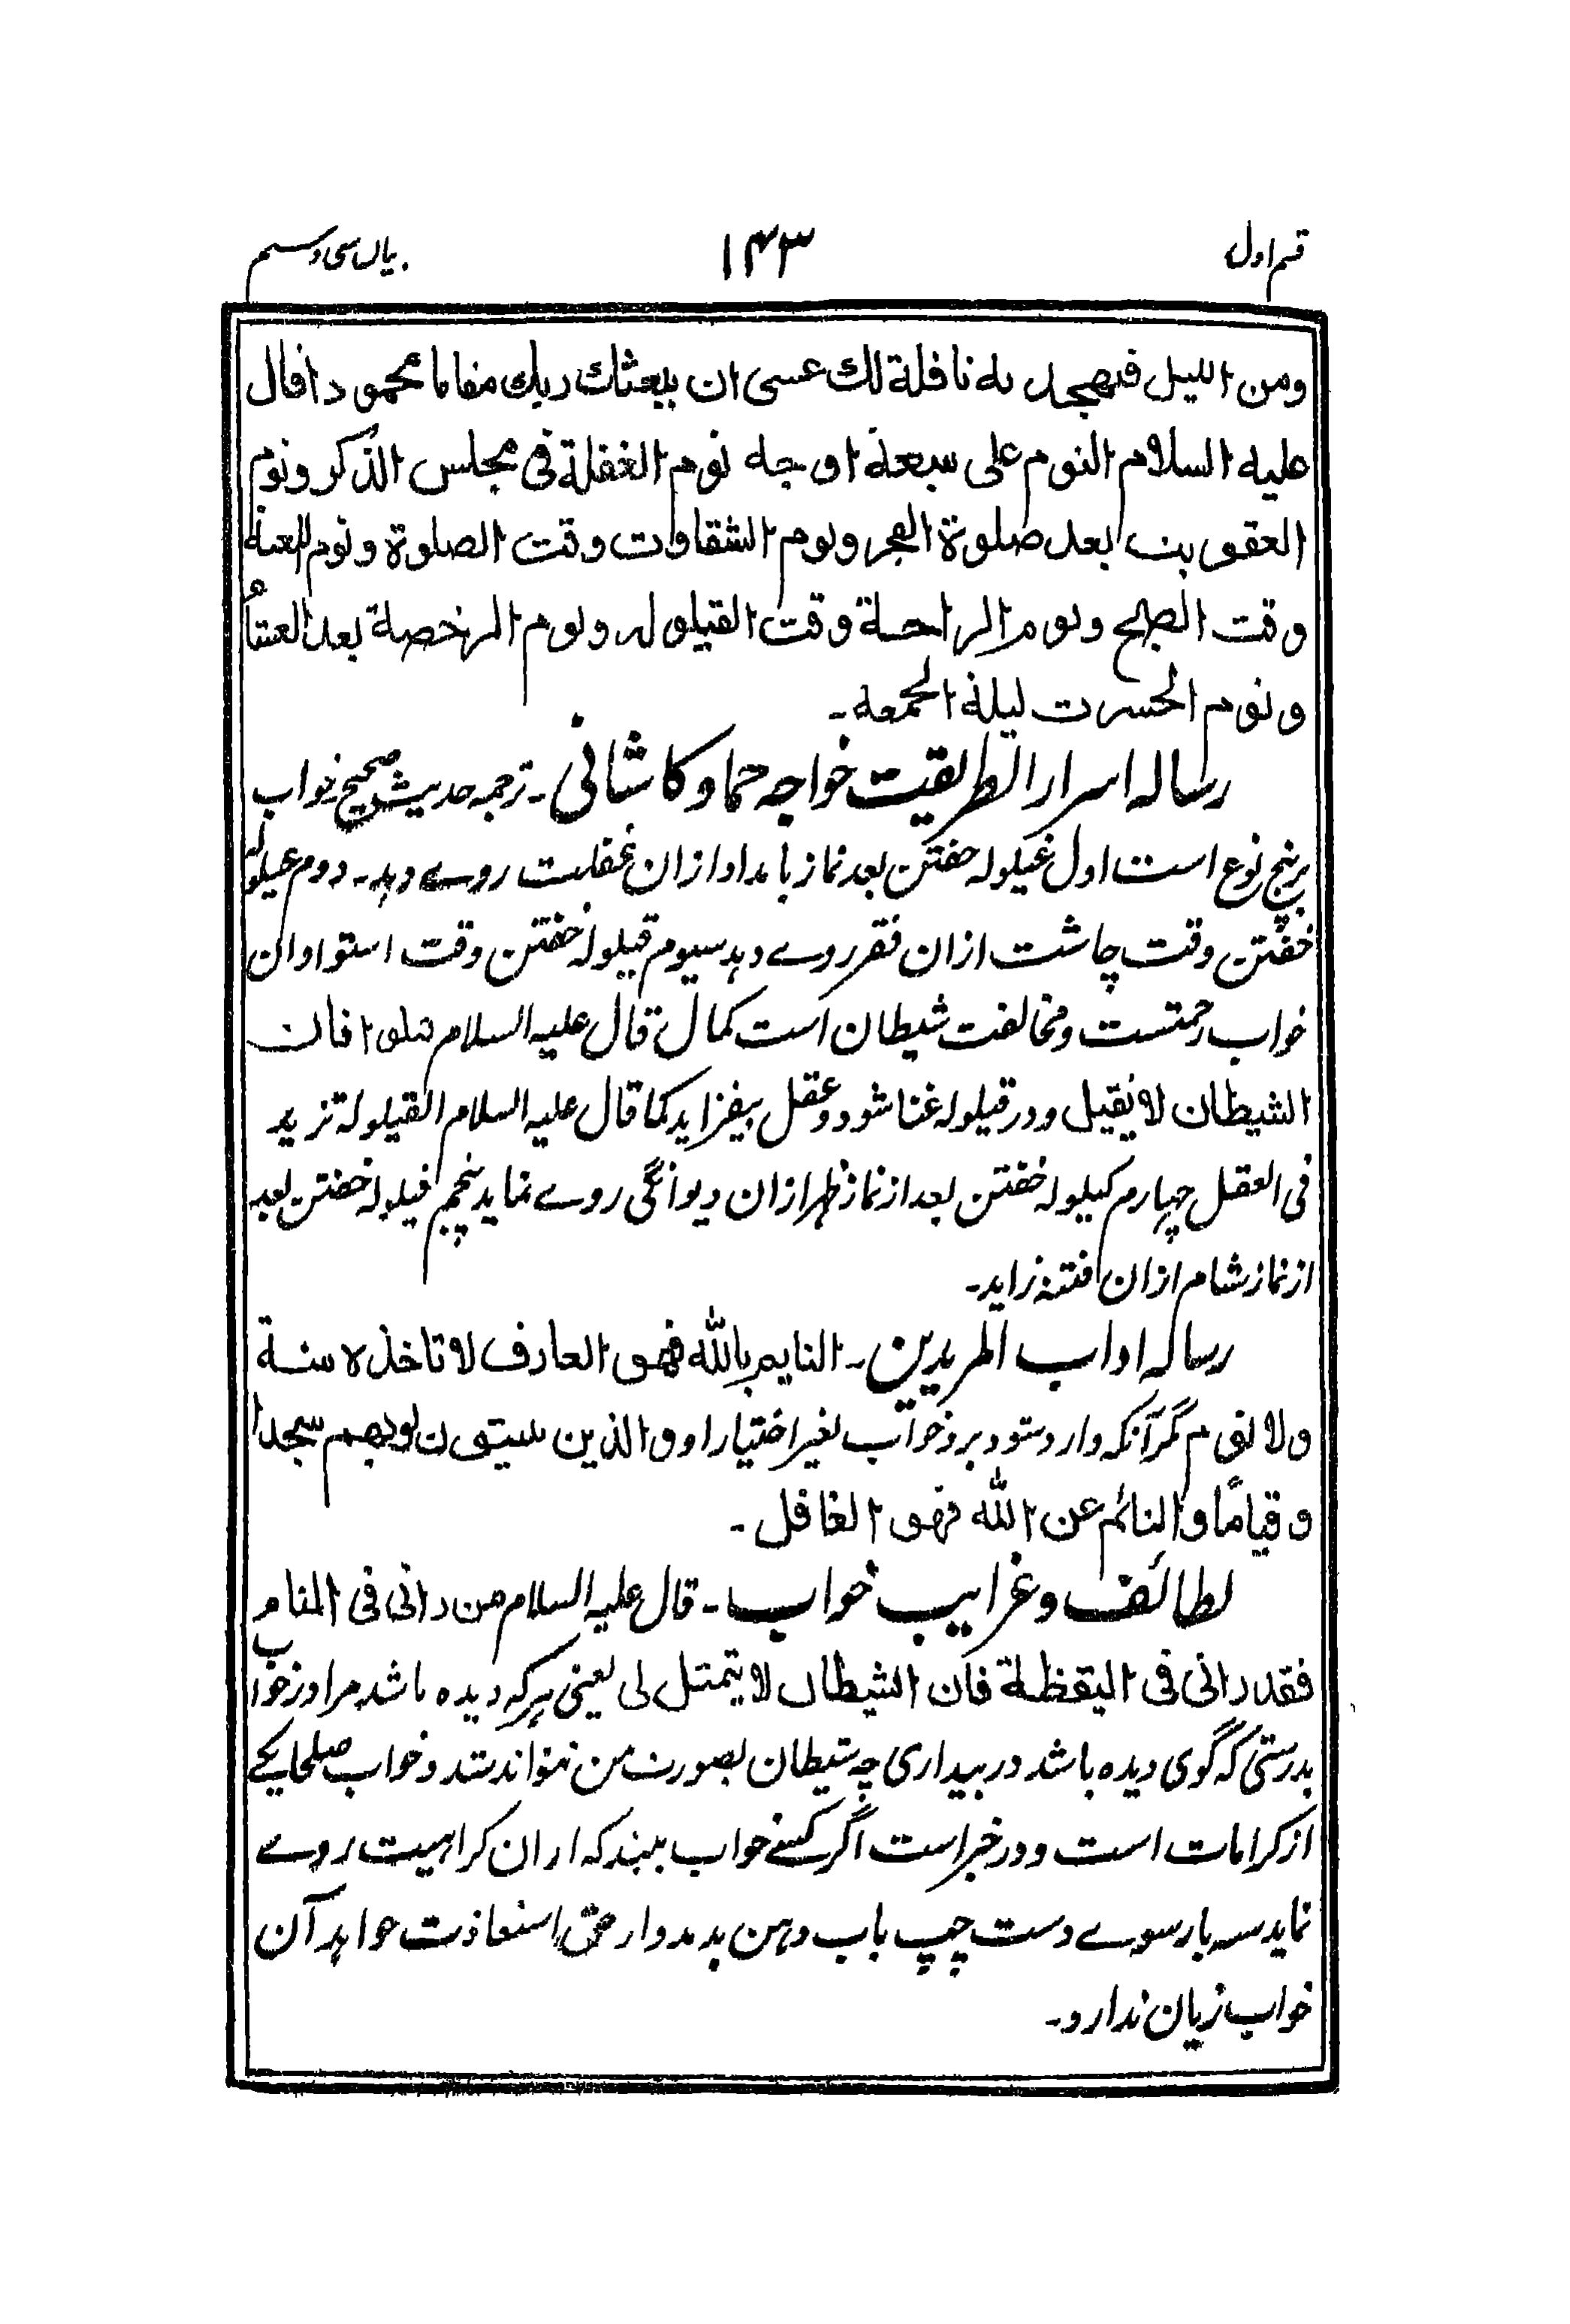 قسم اول ۱۴۳ بیان سی و سیم
ومن اللیل فتهجد به نافلة لك عسى ان یبعثك ربك مقاما محمودا قال
علیه السلام النوم على سبعة اوجه نوم الغفلة فی مجلس الذكر ونوم
العقوبت بعد صلوة الفجر ونوم الشقاوت وقت الصلوة ونوم اللعنة
وقت الصبح ونوم الراحة وقت القیلوله ونوم الرخصة بعد العشاء
ونوم الحسرت لیلة الجمعه۔
رساله اسرار الطریقیت خواجه حماد کاشانی۔ ترجمه حدیث صحیح خواب
بر پنج نوع است اول غیلوله خفتن بعد نماز بامداد ازان غفلت روے دهد۔ دوم عیلوله
خفتن وقت چاشت ازان فقر روے دهد سیوم قیلوله خفتن وقت استوا و ان
خواب رحمتست و مخالفت شیطان است کمال قال علیه السلام قیلوا فان
الشیطان لا یقیل و در قیلوله غنا شود و عقل بیفزاید کما قال علیه السلام القیلوله تزید
فی العقل چهارم کیلوله خفتن بعد از نماز ظهر ازان دیوانگی روے نماید پنجم فیلوله خفتن بعد
از نماز شام ازان فتنه زاید۔
رساله اداب المریدین۔ النایم بالله فهو العارف لا تاخذه سنة
ولا نوم مگر آنکه وارد شود برو خواب بغیر اختیار او والذین یبیتون لربهم سجدا
وقیاما والنائم عن الله فهو الغافل۔
لطائف و غرایب خواب۔ قال علیه السلام من رانی فی المنام
فقد رانی فی الیقظة فان الشیطان لا یتمثل لی یعنی هرکه دیده باشد مرا در خواب
بدرستی که گوی دیده باشد در بیداری چه شیطان بصورت من نتواند شد و خواب صلحا یکے
از کرامات است و در خبر است اگر کسے خواب بیند که ازان کراهیت روے
نماید سه بار سوے دست چپ باب دهن بدمد و از حق استعاذت خواهد آن
خواب زیان ندارد۔